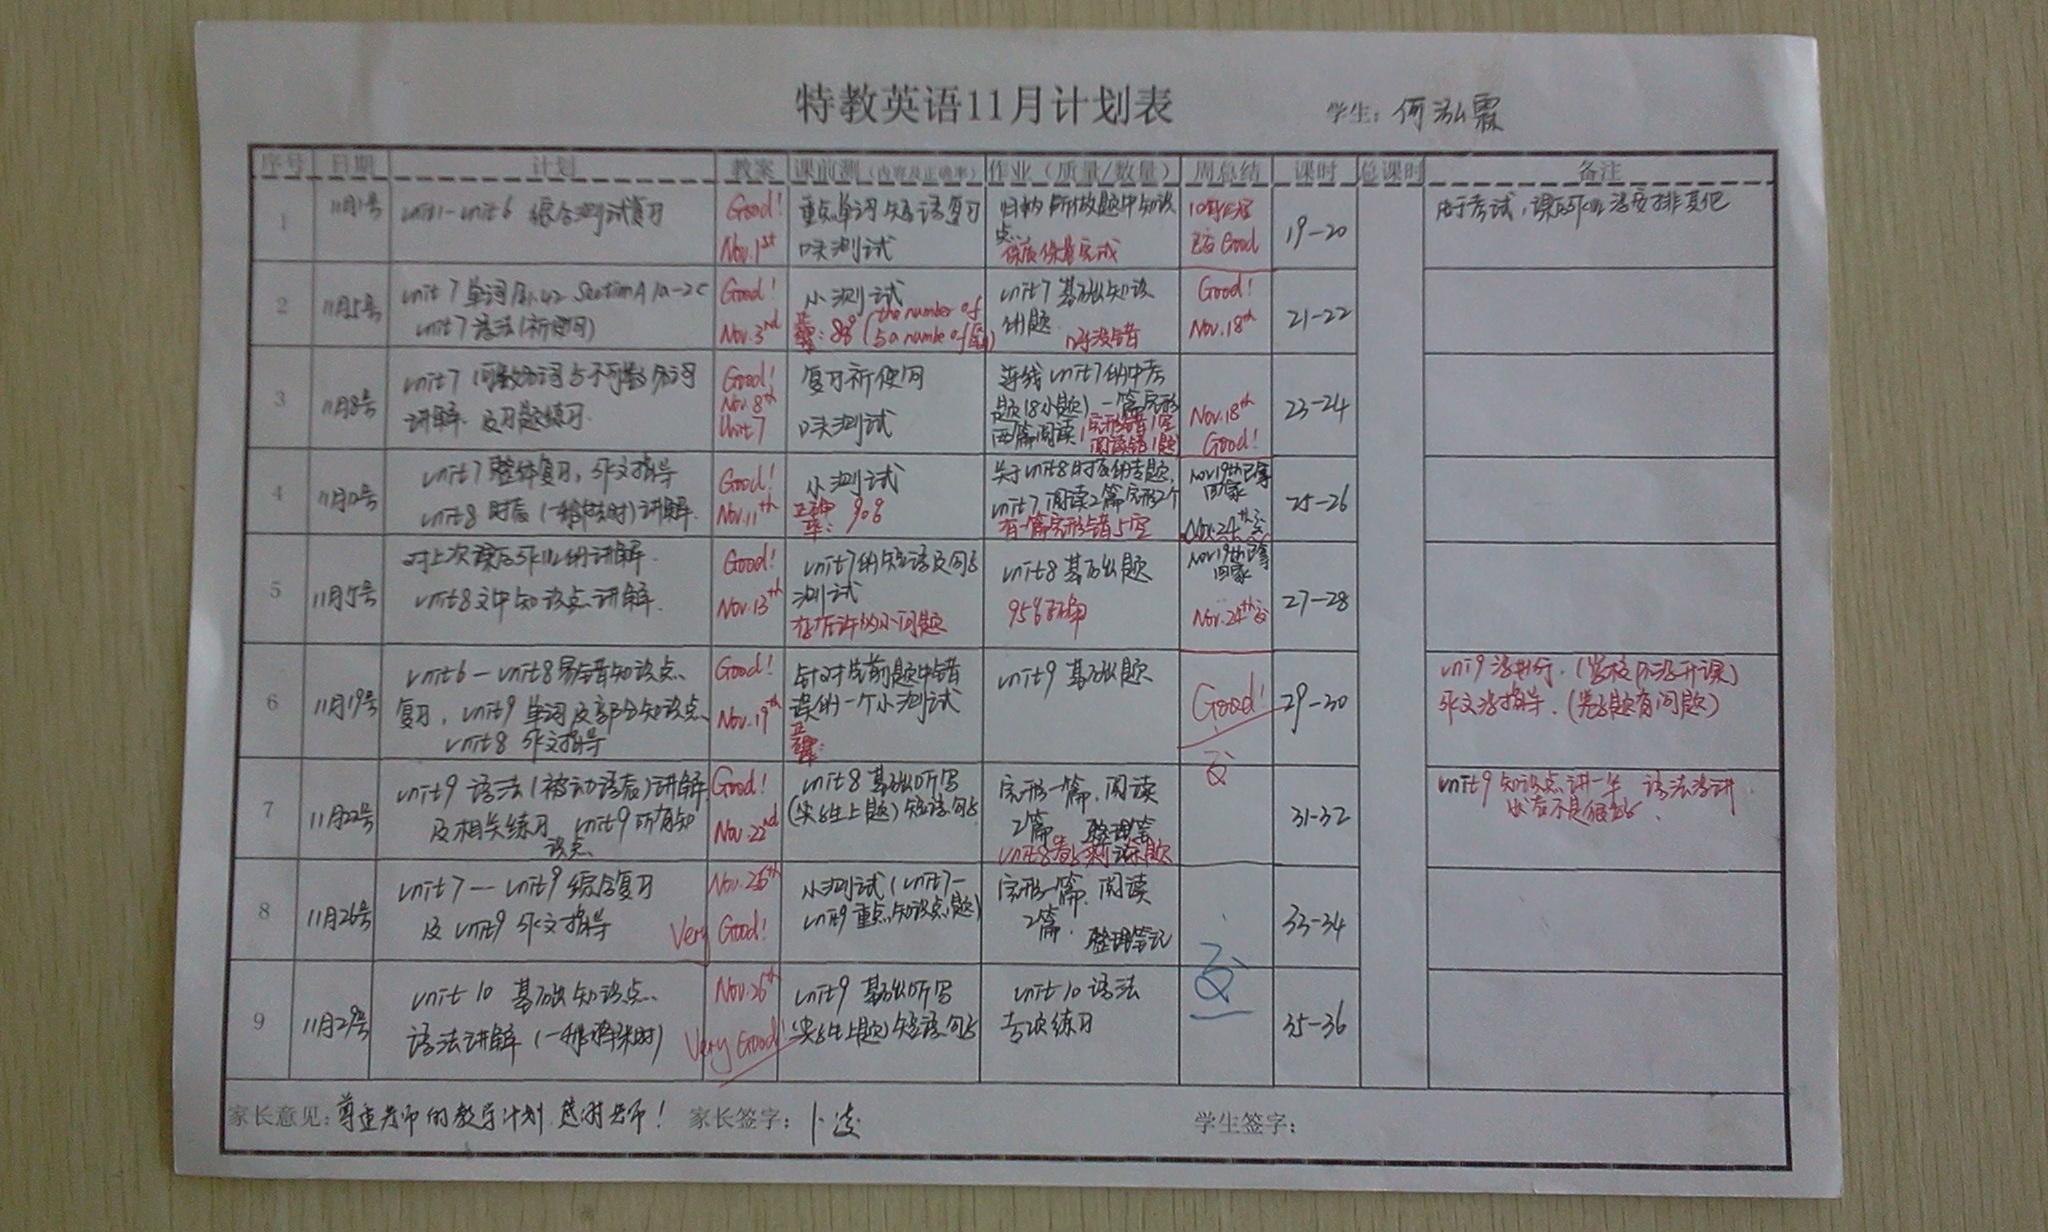 特教英语11月计划表
学生：何泓霖
序号 日期 计划 教案 课前测（内容及正确率） 作业（质量/数量） 周总结 课时 总课时 备注
1 11月1号 unit1-unit6 综合测试复习 Good! Nov.1st 重点单词短语复习
口头测试 归纳所做题中知识
点. 保质保量完成 Good 19-20 由于考试，课后作业没安排其他
2 11月5号 unit 7 单词 Section A 1a-2c
unit 7 语法(祈使句) Good! Nov.3rd 小测试
正确率: 88% (the number of
与a number of unit7 基础知识
的题. Good! Nov.18th 21-22
3 11月8号 unit7 可数名词与不可数名词
讲解 及习题练习. Good! Nov.8th Unit 7 复习祈使句
口头测试 连线unit7的中考
题(8小题) 一篇完形
两篇阅读 (完形错1空
阅读错1题) Nov.18th Good! 23-24
4 11月12号 unit7 整体复习，作文指导
unit8 时态 (一般将来时) 讲解. Good! Nov.11th 小测试
正确率: 90% 关于unit8时态的专题,
unit7 阅读2篇完形2个
有一篇完形错5空 Nov19th已拿
回家
Nov.24th交 25-26
5 11月15号 对上次课后作业的讲解.
unit8文中知识点讲解. Good! Nov.13th unit7的短语及句子
测试
存在许多小问题 unit8 基础题
95%正确 Nov19th已拿
回家
Nov.24th交 27-28
6 11月19号 unit6-unit8易错知识点
复习，unit9 单词及部分知识点
unit8 作文指导 Good! Nov.19th 针对先前题中错
误的一个小测试
正确率: unit9 基础题 Good! 29-30 unit9没进行. (学校还没开课)
作文没指导. (先前题有问题)
7 11月22号 unit9 语法(被动语态)讲解
及相关练习 unit9所有知
识点 Good! Nov.22nd unit8 基础听写
(学生上题) 短语句子 完形一篇, 阅读
2篇 整理笔记 交 31-32 unit9 知识点讲一半 语法没讲.
状态不是很好.
8 11月26号 unit7-unit9 综合复习
及unit9 作文指导 Nov.26th Very Good! 小测试(unit7-
unit9 重点知识点题) 完形一篇, 阅读
2篇. 整理笔记 33-34
9 11月29号 unit 10 基础知识点、
语法讲解 (一般将来时) Nov.26th Very Good! unit9 基础听写
短语句子 unit 10 语法
专项练习 交 35-36
家长意见：尊重老师的教学计划. 感谢老师! 家长签字：卜凌 学生签字：